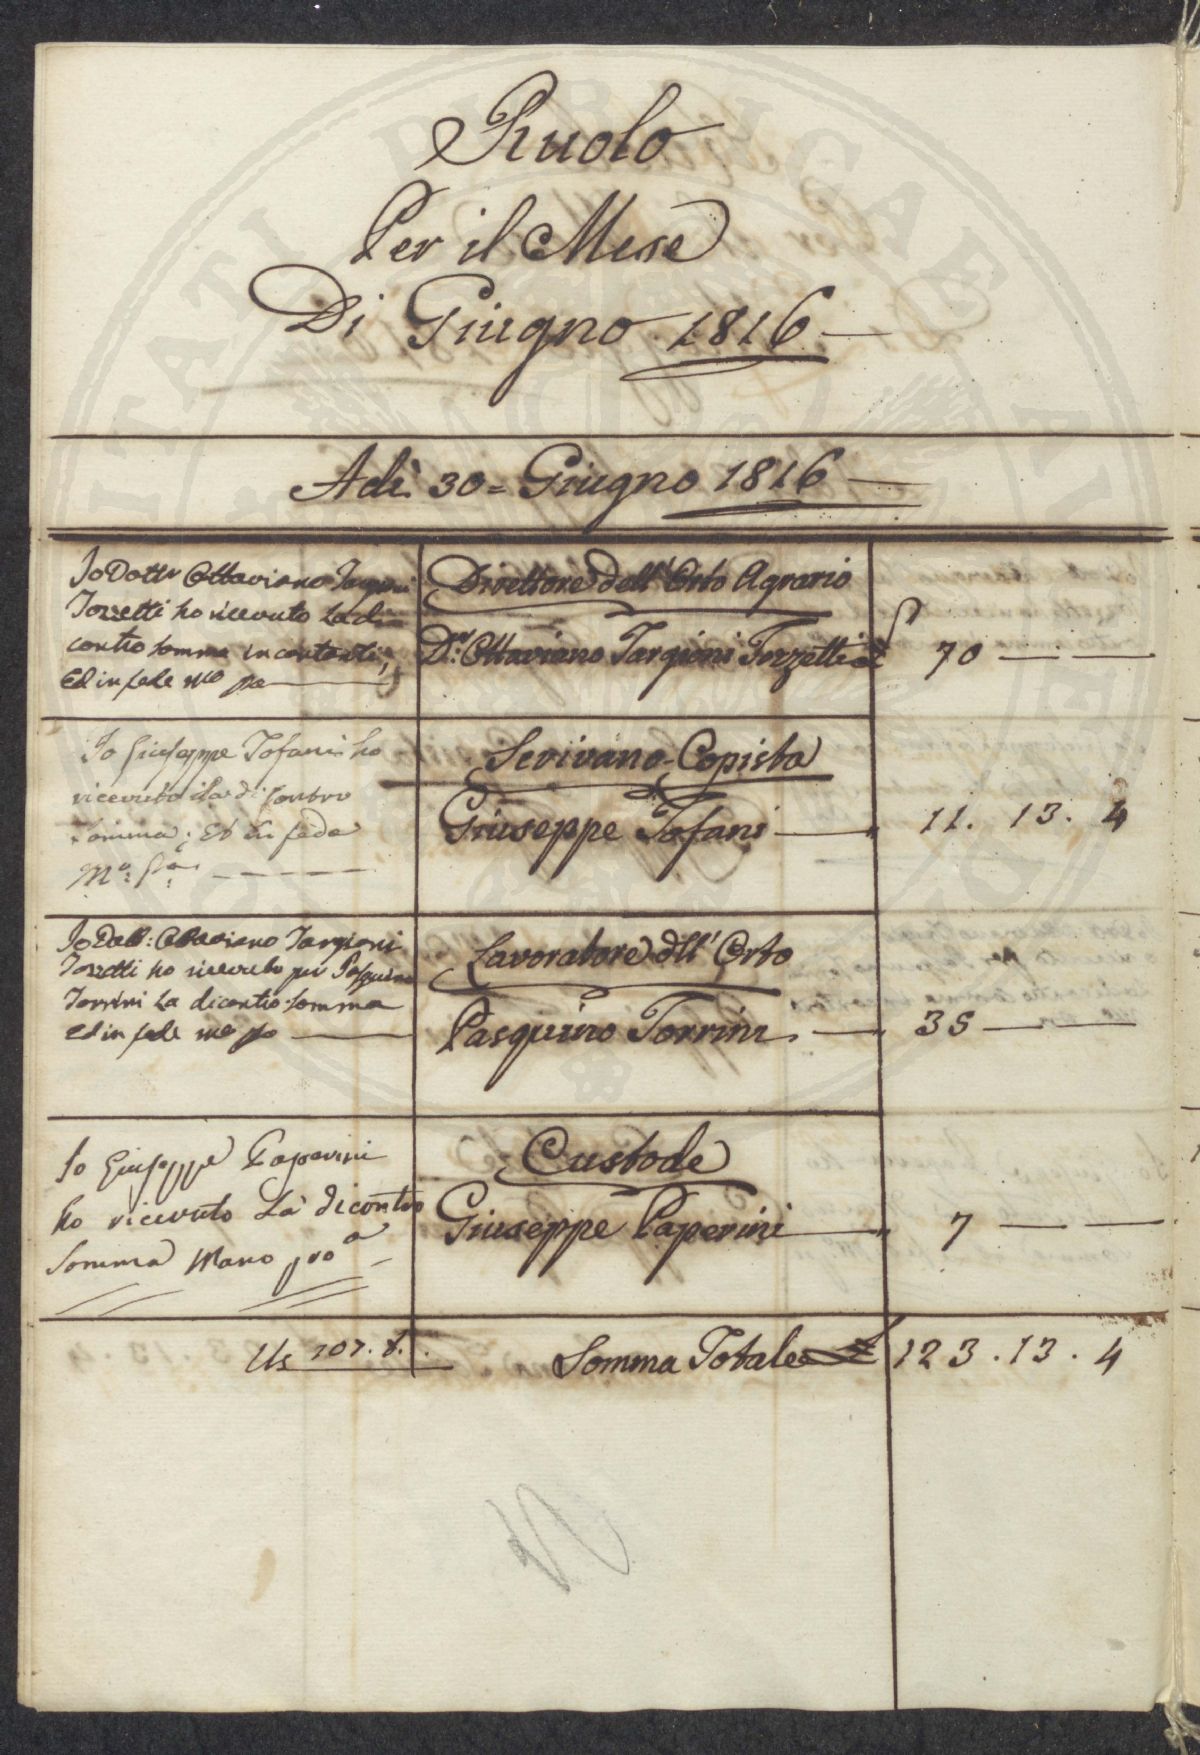 Ruolo
Per il Mese
Di Giugno 1816
Adì 30 = Giugno 1816
Io Dottr Ottaviano Targioni
Tozzetti ho ricevuto la di
contro somma in contanti,
Ed in fede mo pa
Direttore dell' Orto Agrario
Dr. Ottaviano Targioni Tozzetti £ 70
Io Giuseppe Tofani ho
ricevuto la di Contro
Somma; Et in fede
Mo: Pa:
Scrivano Copista
Giuseppe Tofani 11. 13. 4
Io Dott: Ottaviano Targioni
Tozzetti ho ricevuto per Pasquino
Torrini la dicontro somma
ed in fede mo pa
Lavoratore dll' Orto
Pasquino Torrini 35
Io Giuseppe Paperini
ho ricevuto La dicontro
Somma Mano proa
Custode
Giuseppe Paperini 7
107. 8.
Somma Totale £ 123. 13. 4